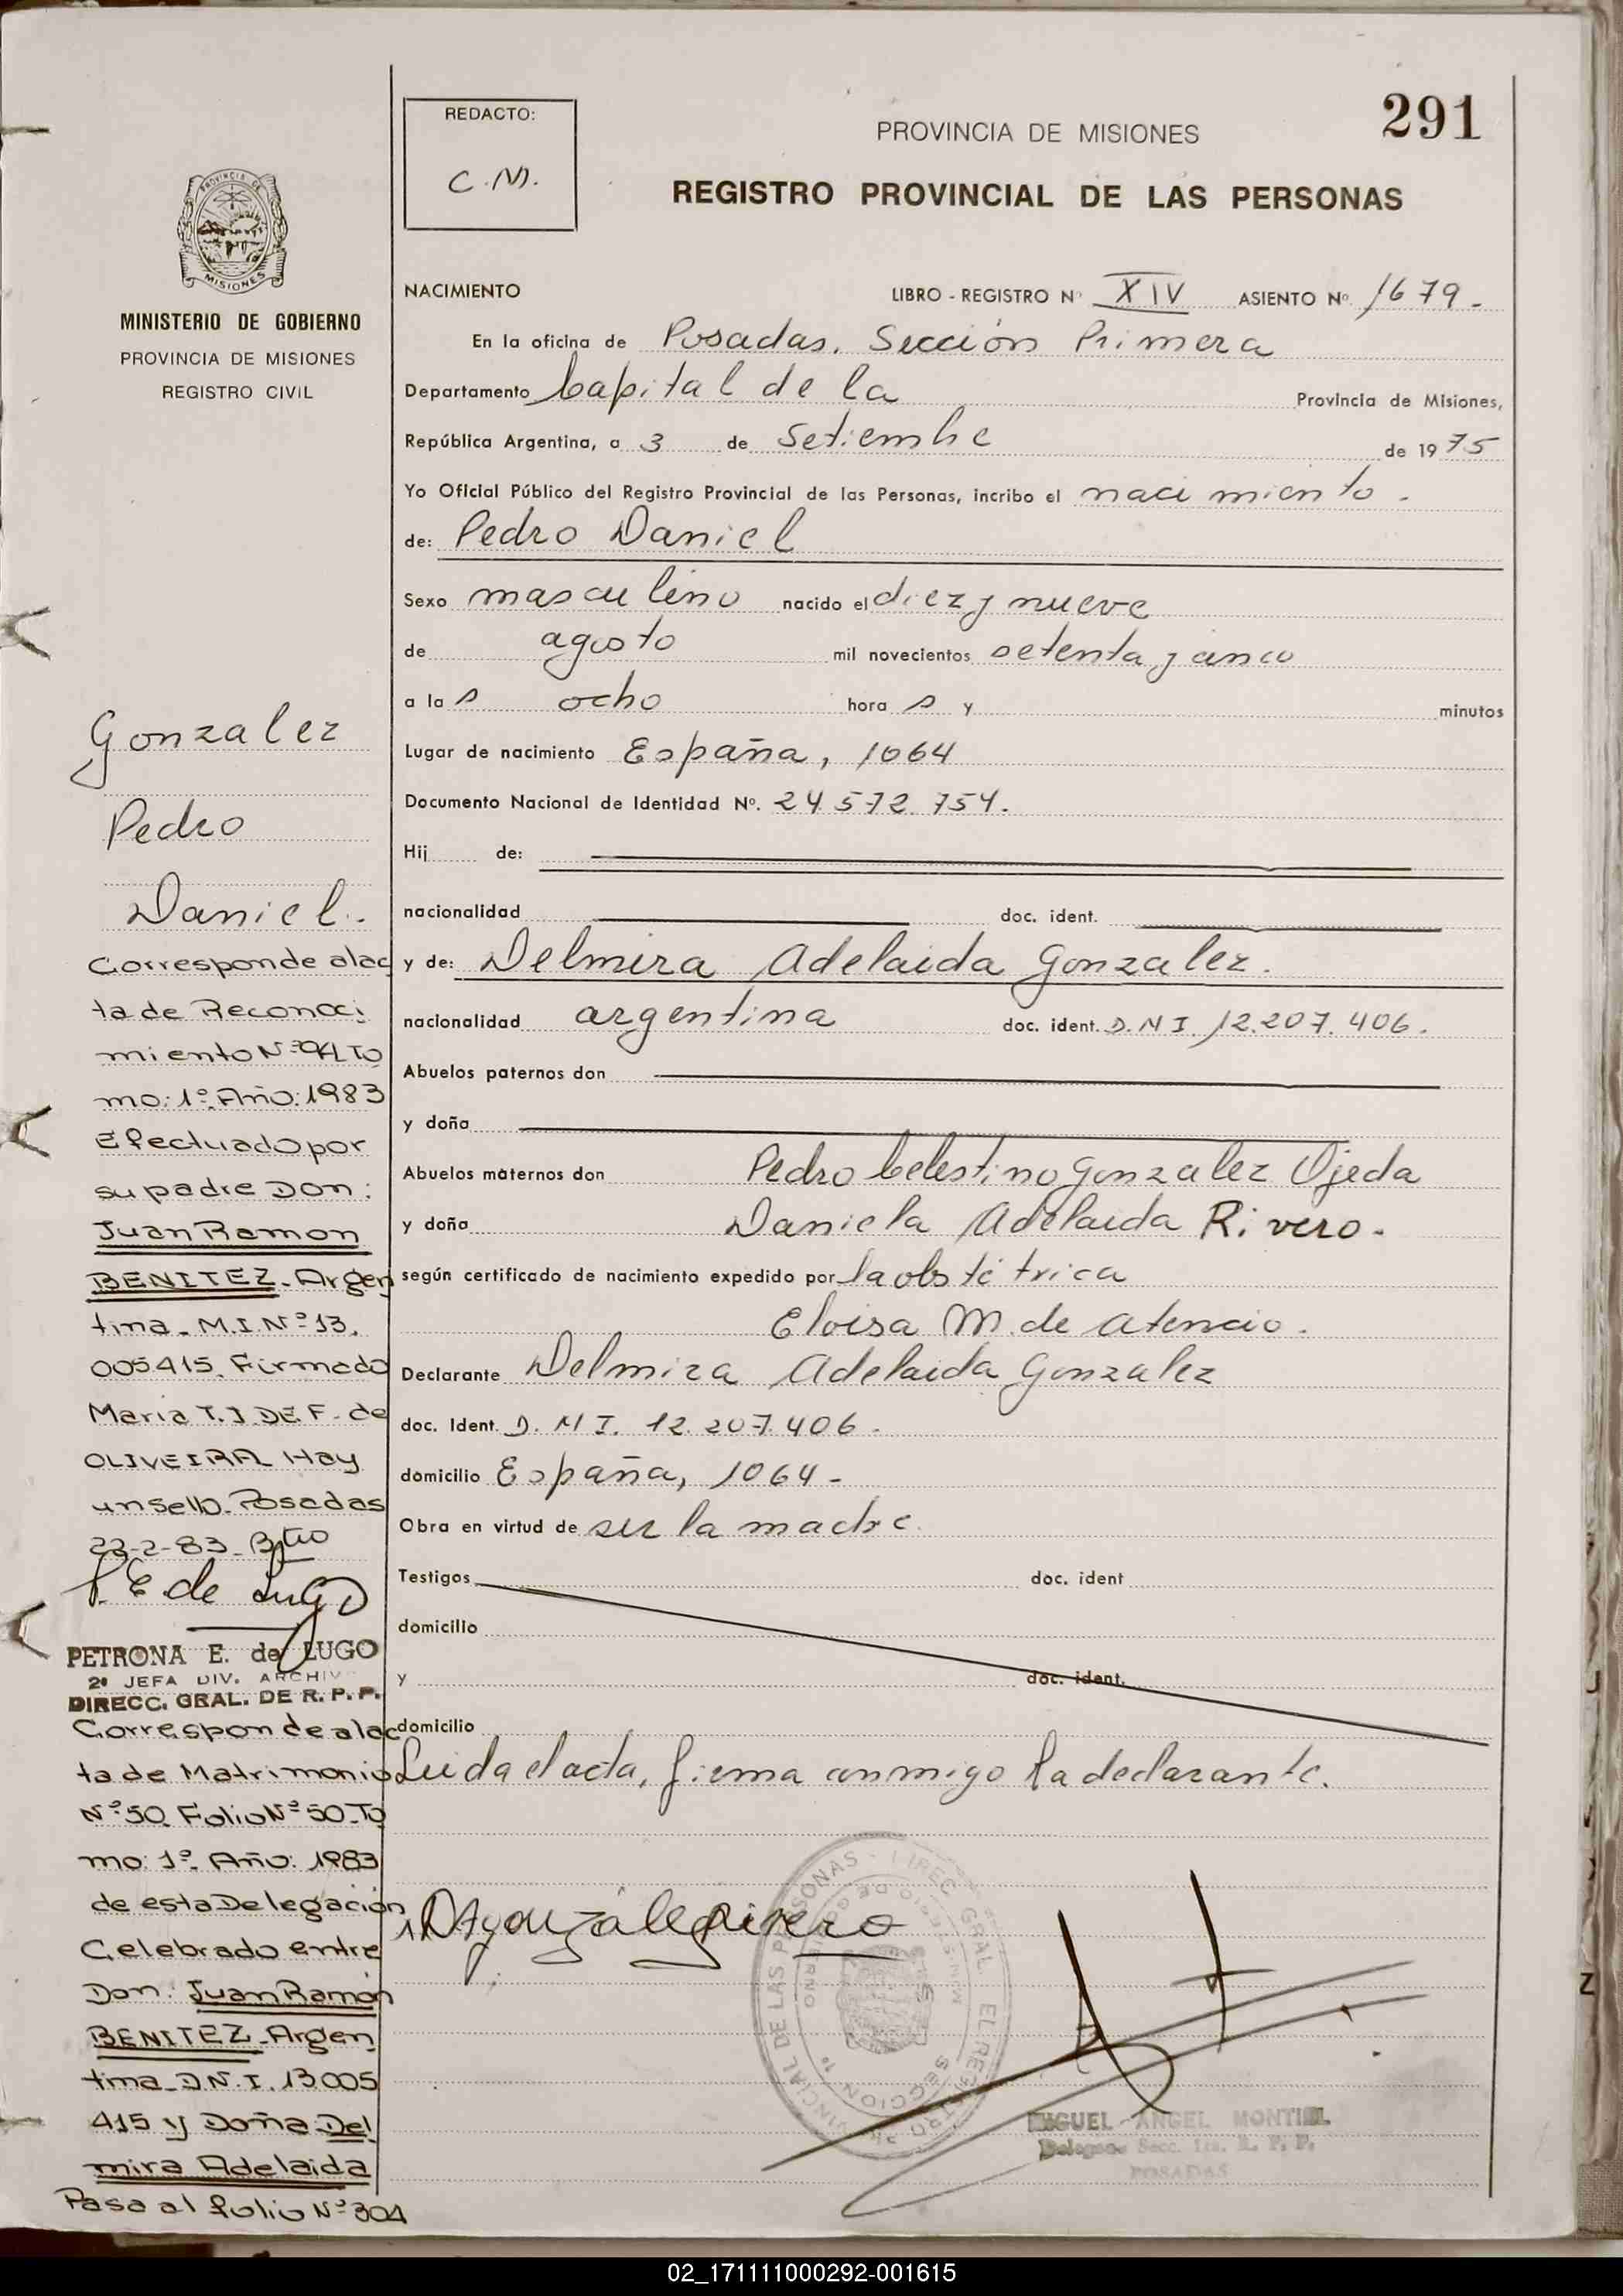 291
REDACTO:
C.M.
PROVINCIA DE MISIONES
REGISTRO PROVINCIAL DE LAS PERSONAS
PROVINCIA DE
MISIONES
MINISTERIO DE GOBIERNO
PROVINCIA DE MISIONES
REGISTRO CIVIL
NACIMIENTO LIBRO - REGISTRO Nº XIV ASIENTO Nº 1679.-
En la oficina de Posadas. Sección Primera
Departamento Capital de la Provincia de Misiones,
República Argentina, a 3 de Setiembre de 1975
Yo Oficial Público del Registro Provincial de las Personas, incribo el nacimiento.
de: Pedro Daniel
Sexo masculino nacido el diez y nueve
de agosto mil novecientos setenta y cinco
a la s ocho hora s y minutos
Lugar de nacimiento España, 1064
Documento Nacional de Identidad Nº. 24.572.754.
Hij de:
nacionalidad doc. ident.
y de: Delmira Adelaida Gonzalez.
nacionalidad argentina doc. ident. D.N.I. 12.207.406.
Abuelos paternos don
y doña
Abuelos maternos don Pedro Celestino Gonzalez Ojeda
y doña Daniela Adelaida Rivero.
según certificado de nacimiento expedido por la obstétrica
Eloisa M. de Atencio.
Declarante Delmira Adelaida Gonzalez
doc. Ident. D.N.I. 12.207.406.
domicilio España, 1064-
Obra en virtud de ser la madre.
Testigos doc. ident
domicilio
y doc. ident.
domicilio
Leida el acta, firma conmigo la declarante.
MIGUEL ANGEL MONTIEL
POSADAS
Gonzalez
Pedro
Daniel.
Corresponde alac
ta de Reconoci
miento Nº To
mo: 1º. Año: 1983
Efectuado por
su padre Don:
Juan Ramon
BENITEZ-Argen
tina-M.I.Nº 13.
005415. Firmado
Maria T.J.DE F. de
OLIVEIRA Hay
un sello. Posadas
22-2-83
P.E de Lugo
PETRONA E. de LUGO
2ª JEFA DIV. ARCHIV
DIRECC. GRAL. DE R. P. P.
Corresponde alac
ta de Matrimonio
Nº 50. Folio Nº 50. To
mo: 1º. Año: 1983
de esta Delegación
Celebrado entre
Don: Juan Ramón
BENITEZ-Argen
tina-D.N.I. 13.005
415 y Doña Del
mira Adelaida
Pasa al folio Nº 304
02_171111000292-001615